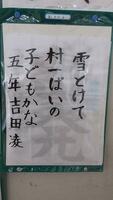 雪とけて
村一ぱいの
子どもかな
五年吉田凌